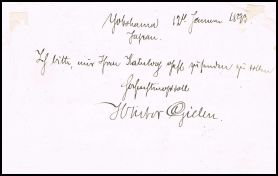 Yokohama 12th Januar
Japan.
Ich bitte, mir Ihren Katalog gefl. zusenden zu wollen
Hochachtungsvoll